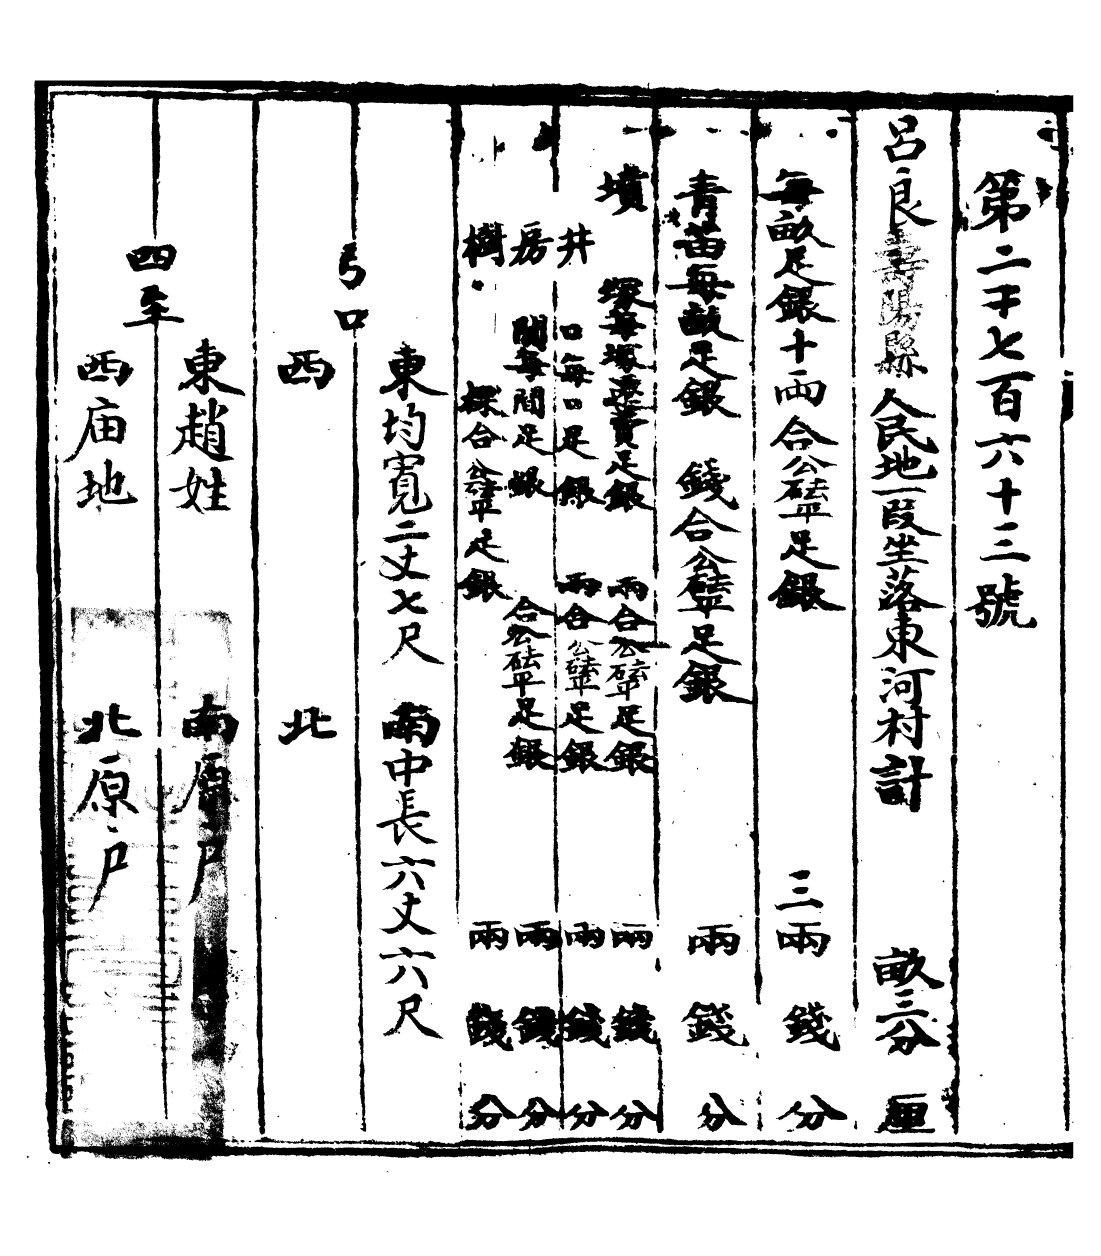 第二千七百六十三號
呂良壽陽縣人民地一段坐落東河村計 畝三分 厘
每畝足銀十両合公砝平足銀 三兩 錢 分
青苗每畝足銀 錢合公砝平足銀 兩 錢 分
墳 塚每塚遷費足銀 兩合公砝平足銀 兩 錢 分
井 口每口足銀 兩合公砝平足銀 兩 錢 分
房 間每間足銀 合公砝平足銀 兩 錢 分
樹 棵合公砝平足銀 兩 錢 分
弓口
東均寬二丈七尺 南中長六丈六尺
西 北
四至
東趙姓 南原户
西庙地 北原户